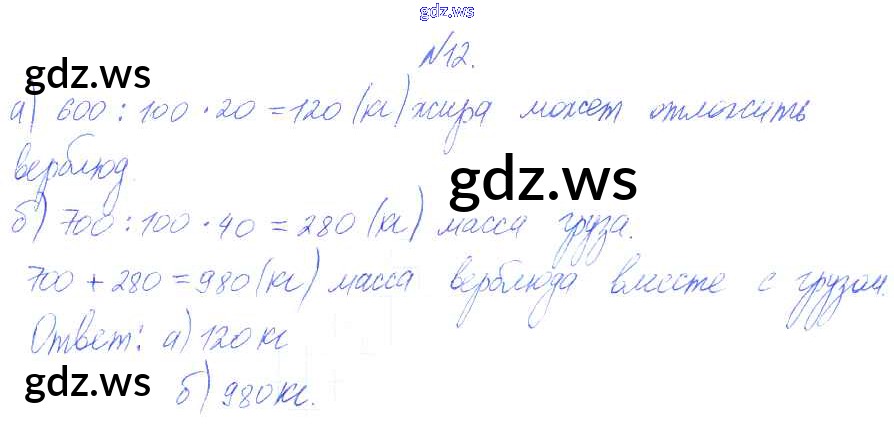 gdz.ws
№12.
gdz.ws
а) 600 : 100 · 20 = 120 (кг) жира может отложить
верблюд.
gdz.ws
б) 700 : 100 · 40 = 280 (кг) масса груза.
700 + 280 = 980 (кг) масса верблюда вместе с грузом.
Ответ: а) 120 кг
gdz.ws
б) 980 кг.